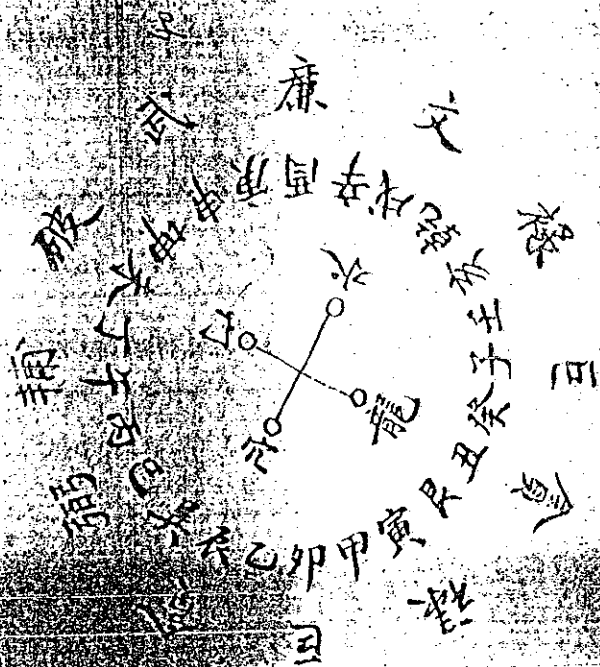 廉
文
祿
巨
貪
巨
弼
輔
破
武
壬子癸丑艮寅甲卯乙辰巽巳丙午丁未坤申庚酉辛戌乾亥
水
龍
穴